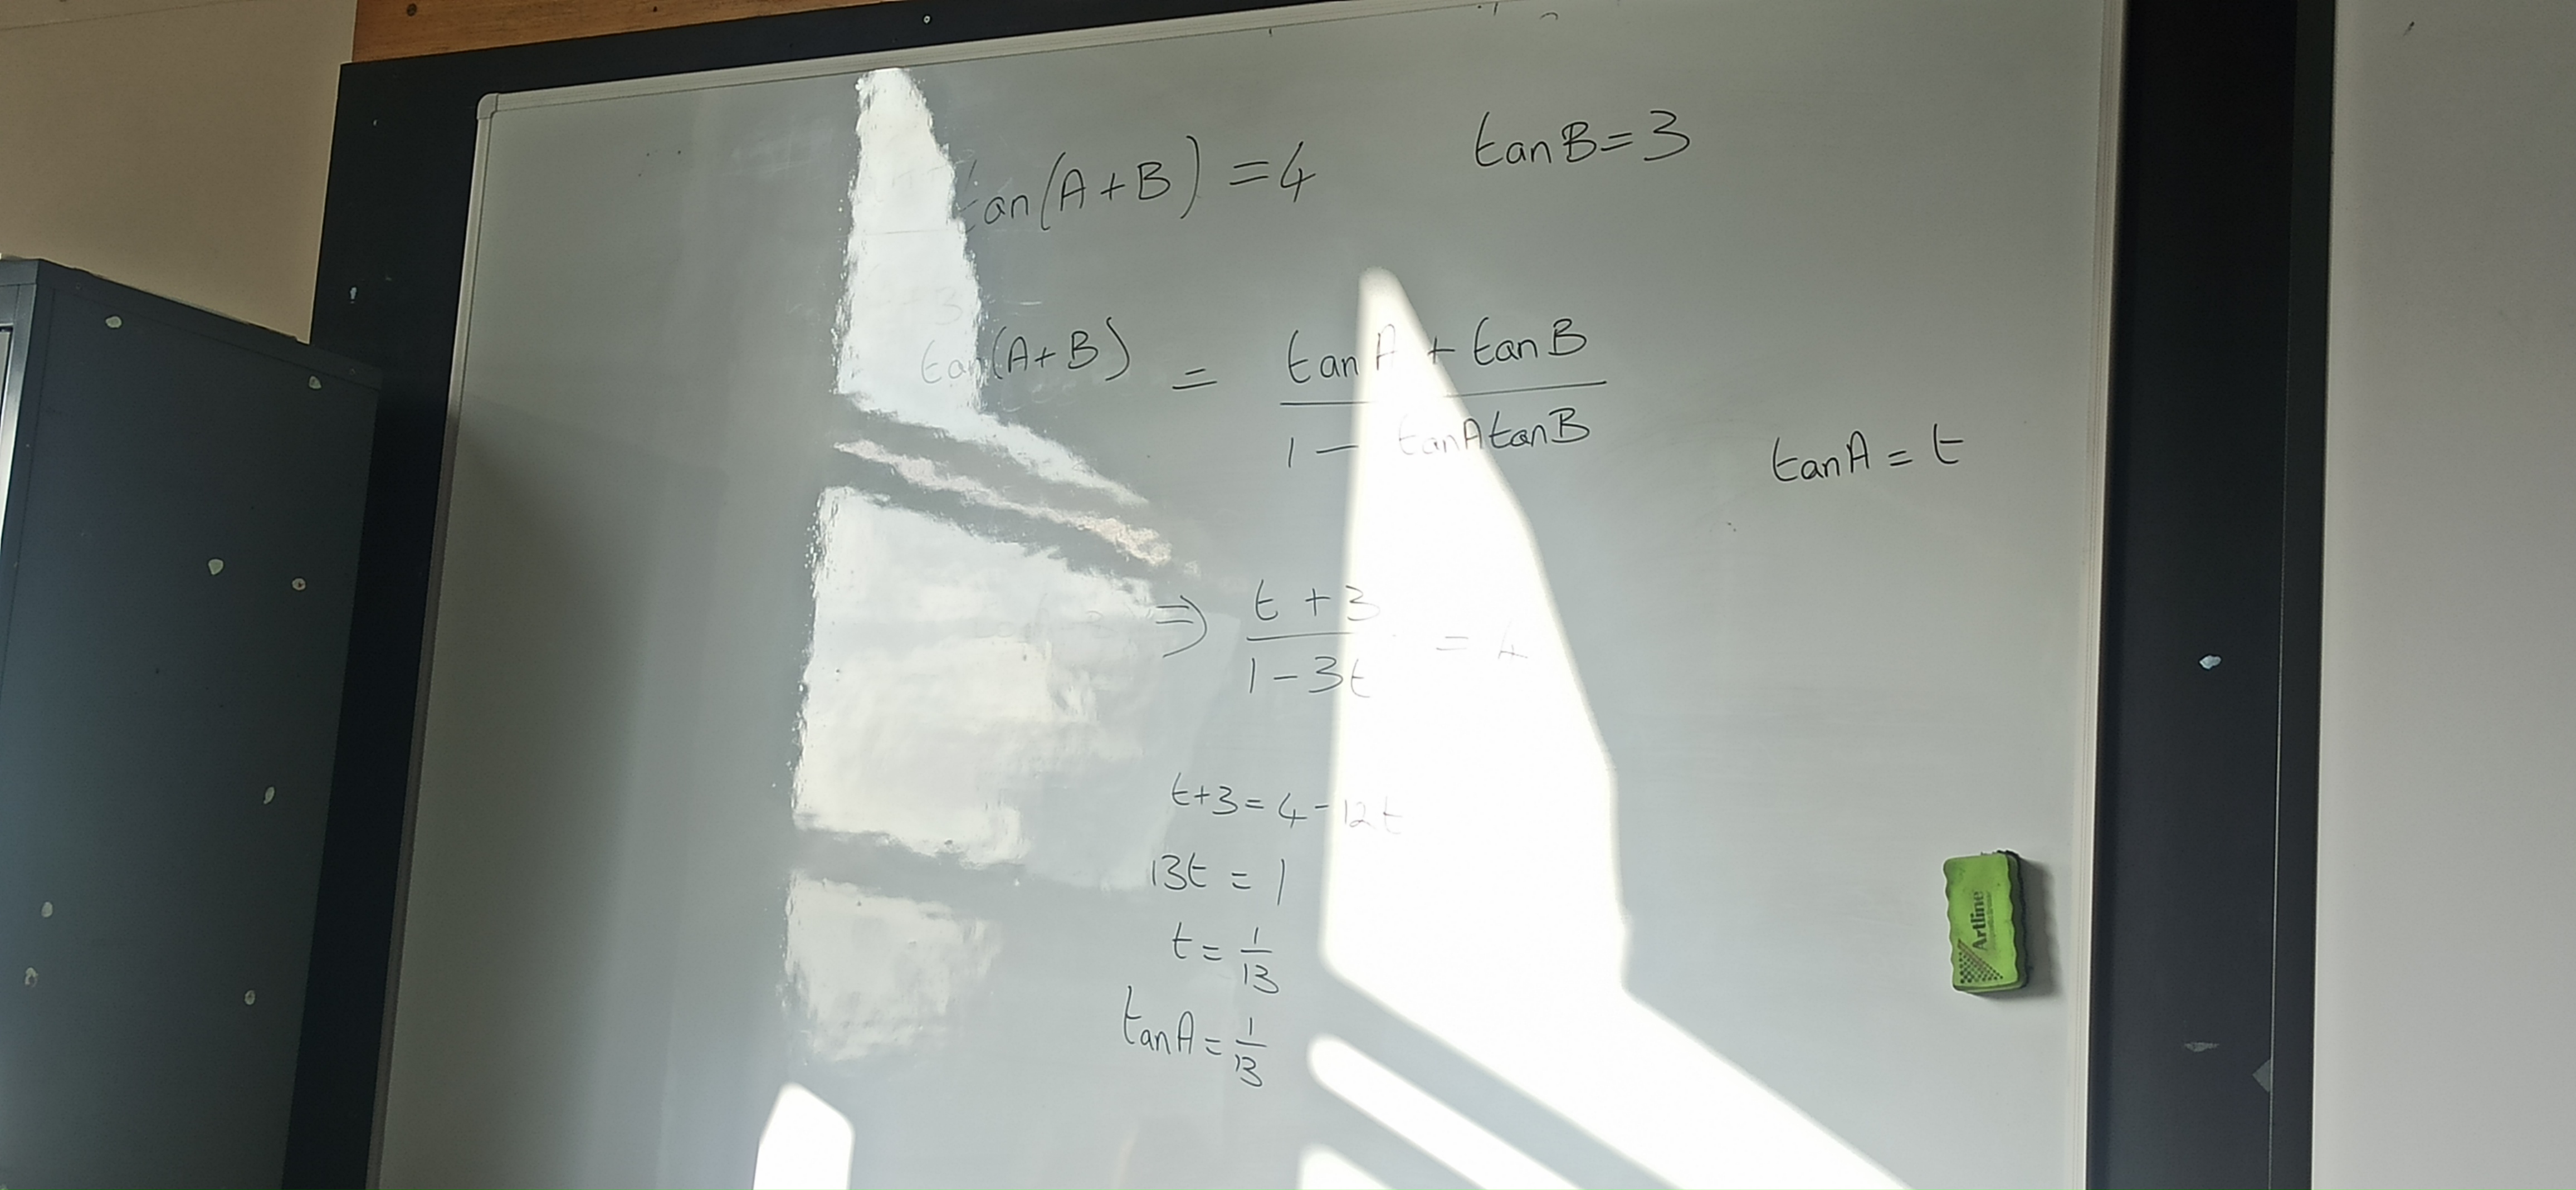 tan(A+B) = 4 tanB = 3
tan(A+B) = (tanA + tanB) / (1 - tanAtanB)
tanA = t
⇒ (t + 3) / (1 - 3t) = 4
t+3 = 4 - 12t
13t = 1
t = 1/13
tanA = 1/13
Artline